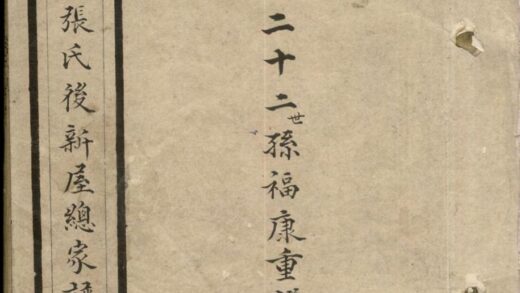 二十二世孫福康重
張氏後新屋總家